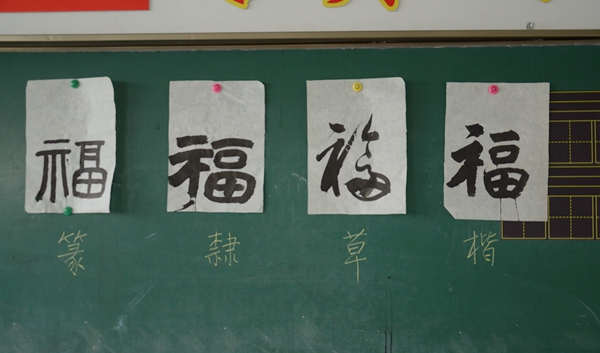 福 福 福 福
篆 隸 草 楷